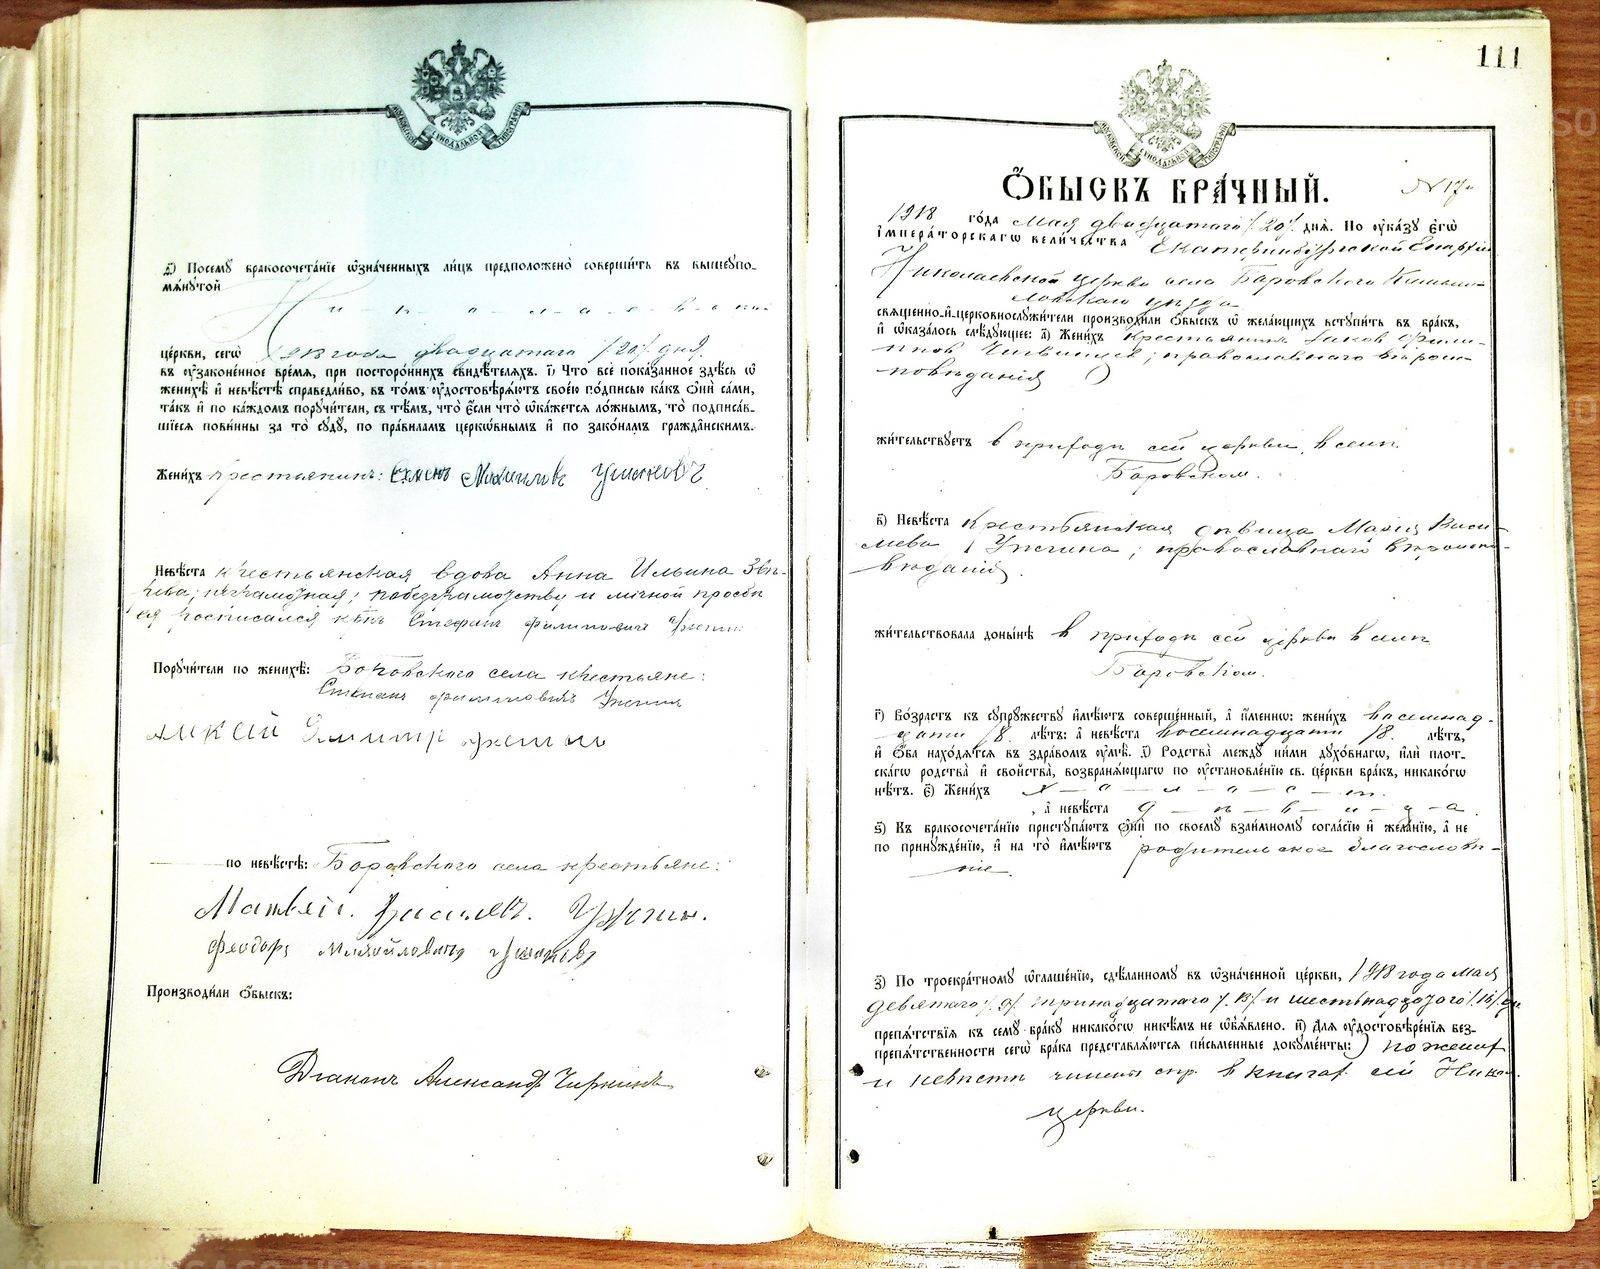 МОСКОВСКОЙ СѴНОДАЛЬНОЙ ТИПОГРАФІИ
д҃) Посемꙋ бракосочета́нїе ѡ҆зна́ченныхъ ли́цъ предположено̀ соверши́ть въ вышеꙋпо-
мѧ́нꙋтой
Н - и - к - о - л - а - е - в - с - кой
це́ркви, сегѡ̀ 1918 года двадцатаго /20/ дня
въ ᲂу҆зако́ненное вре́мѧ, при посторо́ннихъ свидѣ́телѧхъ. і҃) Что̀ всѐ пока́занное здѣ́сь ѡ҆
женихѣ̀ и҆ невѣ́стѣ справедли́во, въ то́мъ ᲂу҆достовѣрѧ́ютъ свое́ю по́дписью ка́къ ѻ҆нѝ са́ми,
та́къ и҆ по ка́ждомъ порꙋчи́тели, съ тѣ́мъ, что̀ є҆́сли что̀ ѡ҆ка́жетсѧ ло́жнымъ, то̀ подписа́в-
шїесѧ пови́нны за то̀ сꙋдꙋ̀, по пра́виламъ церкѡ́внымъ и҆ по зако́намъ гражда́нскимъ.
Жени́хъ крестьянинъ: Семенъ Михаиловъ
Невѣ́ста крестьянская вдова Анна Ильина
неграмотная; по безграмотству и личной прозьбѣ
ея росписался кр-нъ Стефанъ Филиповичъ
Порꙋчи́тели по женихѣ̀: Боровскаго села крестьяне:
Степанъ Филиповичъ
Алексей
по невѣ́стѣ: Боровскаго села крестьяне:
Матвѣй Василев. Ужгин.
Феодоръ Михайловичъ
Производи́ли ѻ҆́быскъ:
Діаконъ Александръ Чиркинъ
111
МОСКОВСКОЙ СѴНОДАЛЬНОЙ ТИПОГРАФІИ
Ѻ҆́БЫСКЪ БРА́ЧНЫЙ. № 17й
1918 го́да Мая двадцатаго /20/ днѧ̀. По ᲂу҆ка́зꙋ є҆гѡ̀
і҆мпера́торскагѡ вели́чества Екатеринбургской Епархіи
Николаевской церкви села Боровского Камыш-
ловскаго уѣзда
свѧще́нно-и҆-церковнослꙋжи́тели производи́ли ѻ҆́быскъ ѡ҆ жела́ющихъ встꙋпи́ть въ бра́къ,
и҆ ѡ҆каза́лось слѣ́дꙋющее: а҃) Жени́хъ крестьянинъ Яков Фили-
ппов; православнаго вѣроис-
повѣданія
жи́тельствꙋетъ в приходѣ сей церкви, в селѣ
Боровском.
в҃) Невѣ́ста крестьянская дѣвица Мария Васи-
льева Ужгина; православнаго вѣроиспо-
вѣданія
жи́тельствовала доны́нѣ в приходѣ сей церкви в селѣ
Боровском.
г҃) Во́зрастъ къ сꙋпрꙋ́жествꙋ и҆мѣ́ютъ соверше́нный, а҆ и҆́менно: жени́хъ восемнад-
цати 18 лѣ́тъ: а҆ невѣ́ста восемнадцати 18. лѣ́тъ,
и҆ ѻ҆́ба нахо́дѧтсѧ въ здра́вомъ ᲂу҆мѣ̀. д҃) Родства̀ междꙋ̀ ни́ми дꙋхо́внагѡ, и҆лѝ пло́т-
скагѡ родства̀ и҆ сво́йства, возбранѧ́ющагѡ по ᲂу҆становле́нїю св. це́ркви бра́къ, никако́гѡ
нѣ́тъ. є҃) Жени́хъ х - о - л - о - с - т.
, а҆ невѣ́ста д - ѣ - в - и - ц - а
ѕ҃) Къ бракосочета́нїю пристꙋпа́ютъ ѻ҆нѝ по своемꙋ̀ взаи́мномꙋ согла́сїю и҆ жела́нїю, а҆ не
по принꙋжде́нїю, и҆ на то̀ и҆мѣ́ютъ родительское благослове-
ніе.
з҃) По троекра́тномꙋ ѡ҆глаше́нїю, сдѣ́ланномꙋ въ ѡ҆зна́ченной це́ркви, 1918 года Мая
девятаго /9/ тринадцатаго /13/ и шестьнадцатаго /16/ дн
препѧ́тствїѧ къ семꙋ̀ бра́кꙋ никако́гѡ никѣ́мъ не ѡ҆б̾ѧ́влено. и҃) Длѧ ᲂу҆достовѣ́ренїѧ без-
препѧ́тственности сегѡ̀ бра́ка представлѧ́ютсѧ пи́сьменные докꙋме́нты: ) по женихѣ
и невѣстѣ спр. в книгах сей Никол.
церкви.